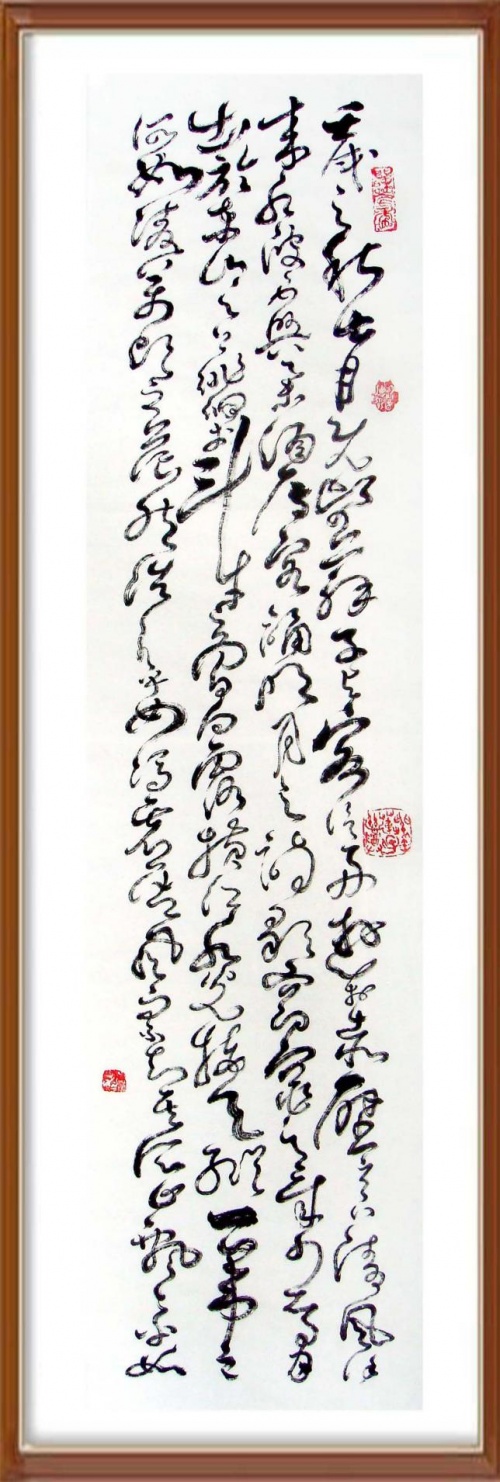 壬戌之秋七月既望蘇子與客泛舟遊於赤壁之下清風徐
來水波不興舉酒屬客誦明月之詩歌窈窕之章少焉月
出於東山之上徘徊於斗牛之間白露橫江水光接天縱一葦之
所如凌萬頃之茫然浩浩乎如馮虛御風而不知其所止飄飄乎如